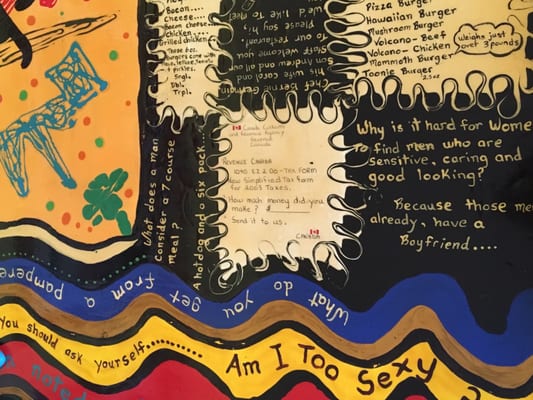 Bacon....
Cheese....
Bacon cheese...
Chicken....
Grilled chicken..
Sngl.
Dbl.
Trpl.
Chef Bernie German
his wife Carol and
Staff welcome you
To our restaurant
Please say hi,
We'd Like To Meet
Pizza Burger
Hawaiian Burger
Mushroom Burger
Volcano - Beef
Volcano - Chicken
Mammoth Burger
Toonie Burger
weighs just over 3 pounds
Canada Customs
and Revenue Agency
REVENUE CANADA
1040 EZ 2 DO - TAX FORM
New Simplified Tax form
for 2003 Taxes.
How much money did you
make? $
Send it to us.
CANADA
What does a man
Consider a 7 course
meal?
A hotdog and a six pack...
Why is it hard for women
to find men who are
sensitive, caring and
good looking?
Because those men
already, have a
Boyfriend....
What do you get from a pampere
You should ask yourself..........
Am I Too Sexy
noted